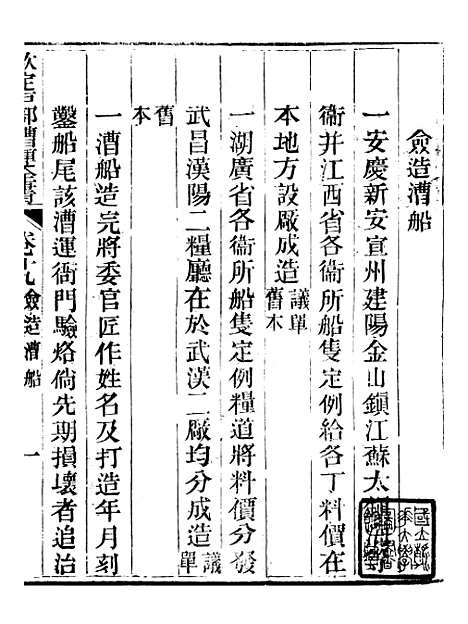 僉造漕船
一安慶新安宣州建陽金山鎮江蘇太
衞并江西省各衞所船隻定例給各丁料價在
本地方設厰成造 議單舊本
一湖廣省各衞所船隻定例糧道將料價分發
武昌漢陽二糧廳在於武漢二厰均分成造 議單
舊本
一漕船造完將委官匠作姓名及打造年月刻
鑿船尾該漕運衙門驗烙倘先期損壞者追治
欽定戶部漕運全書 卷十九 僉造漕船 一